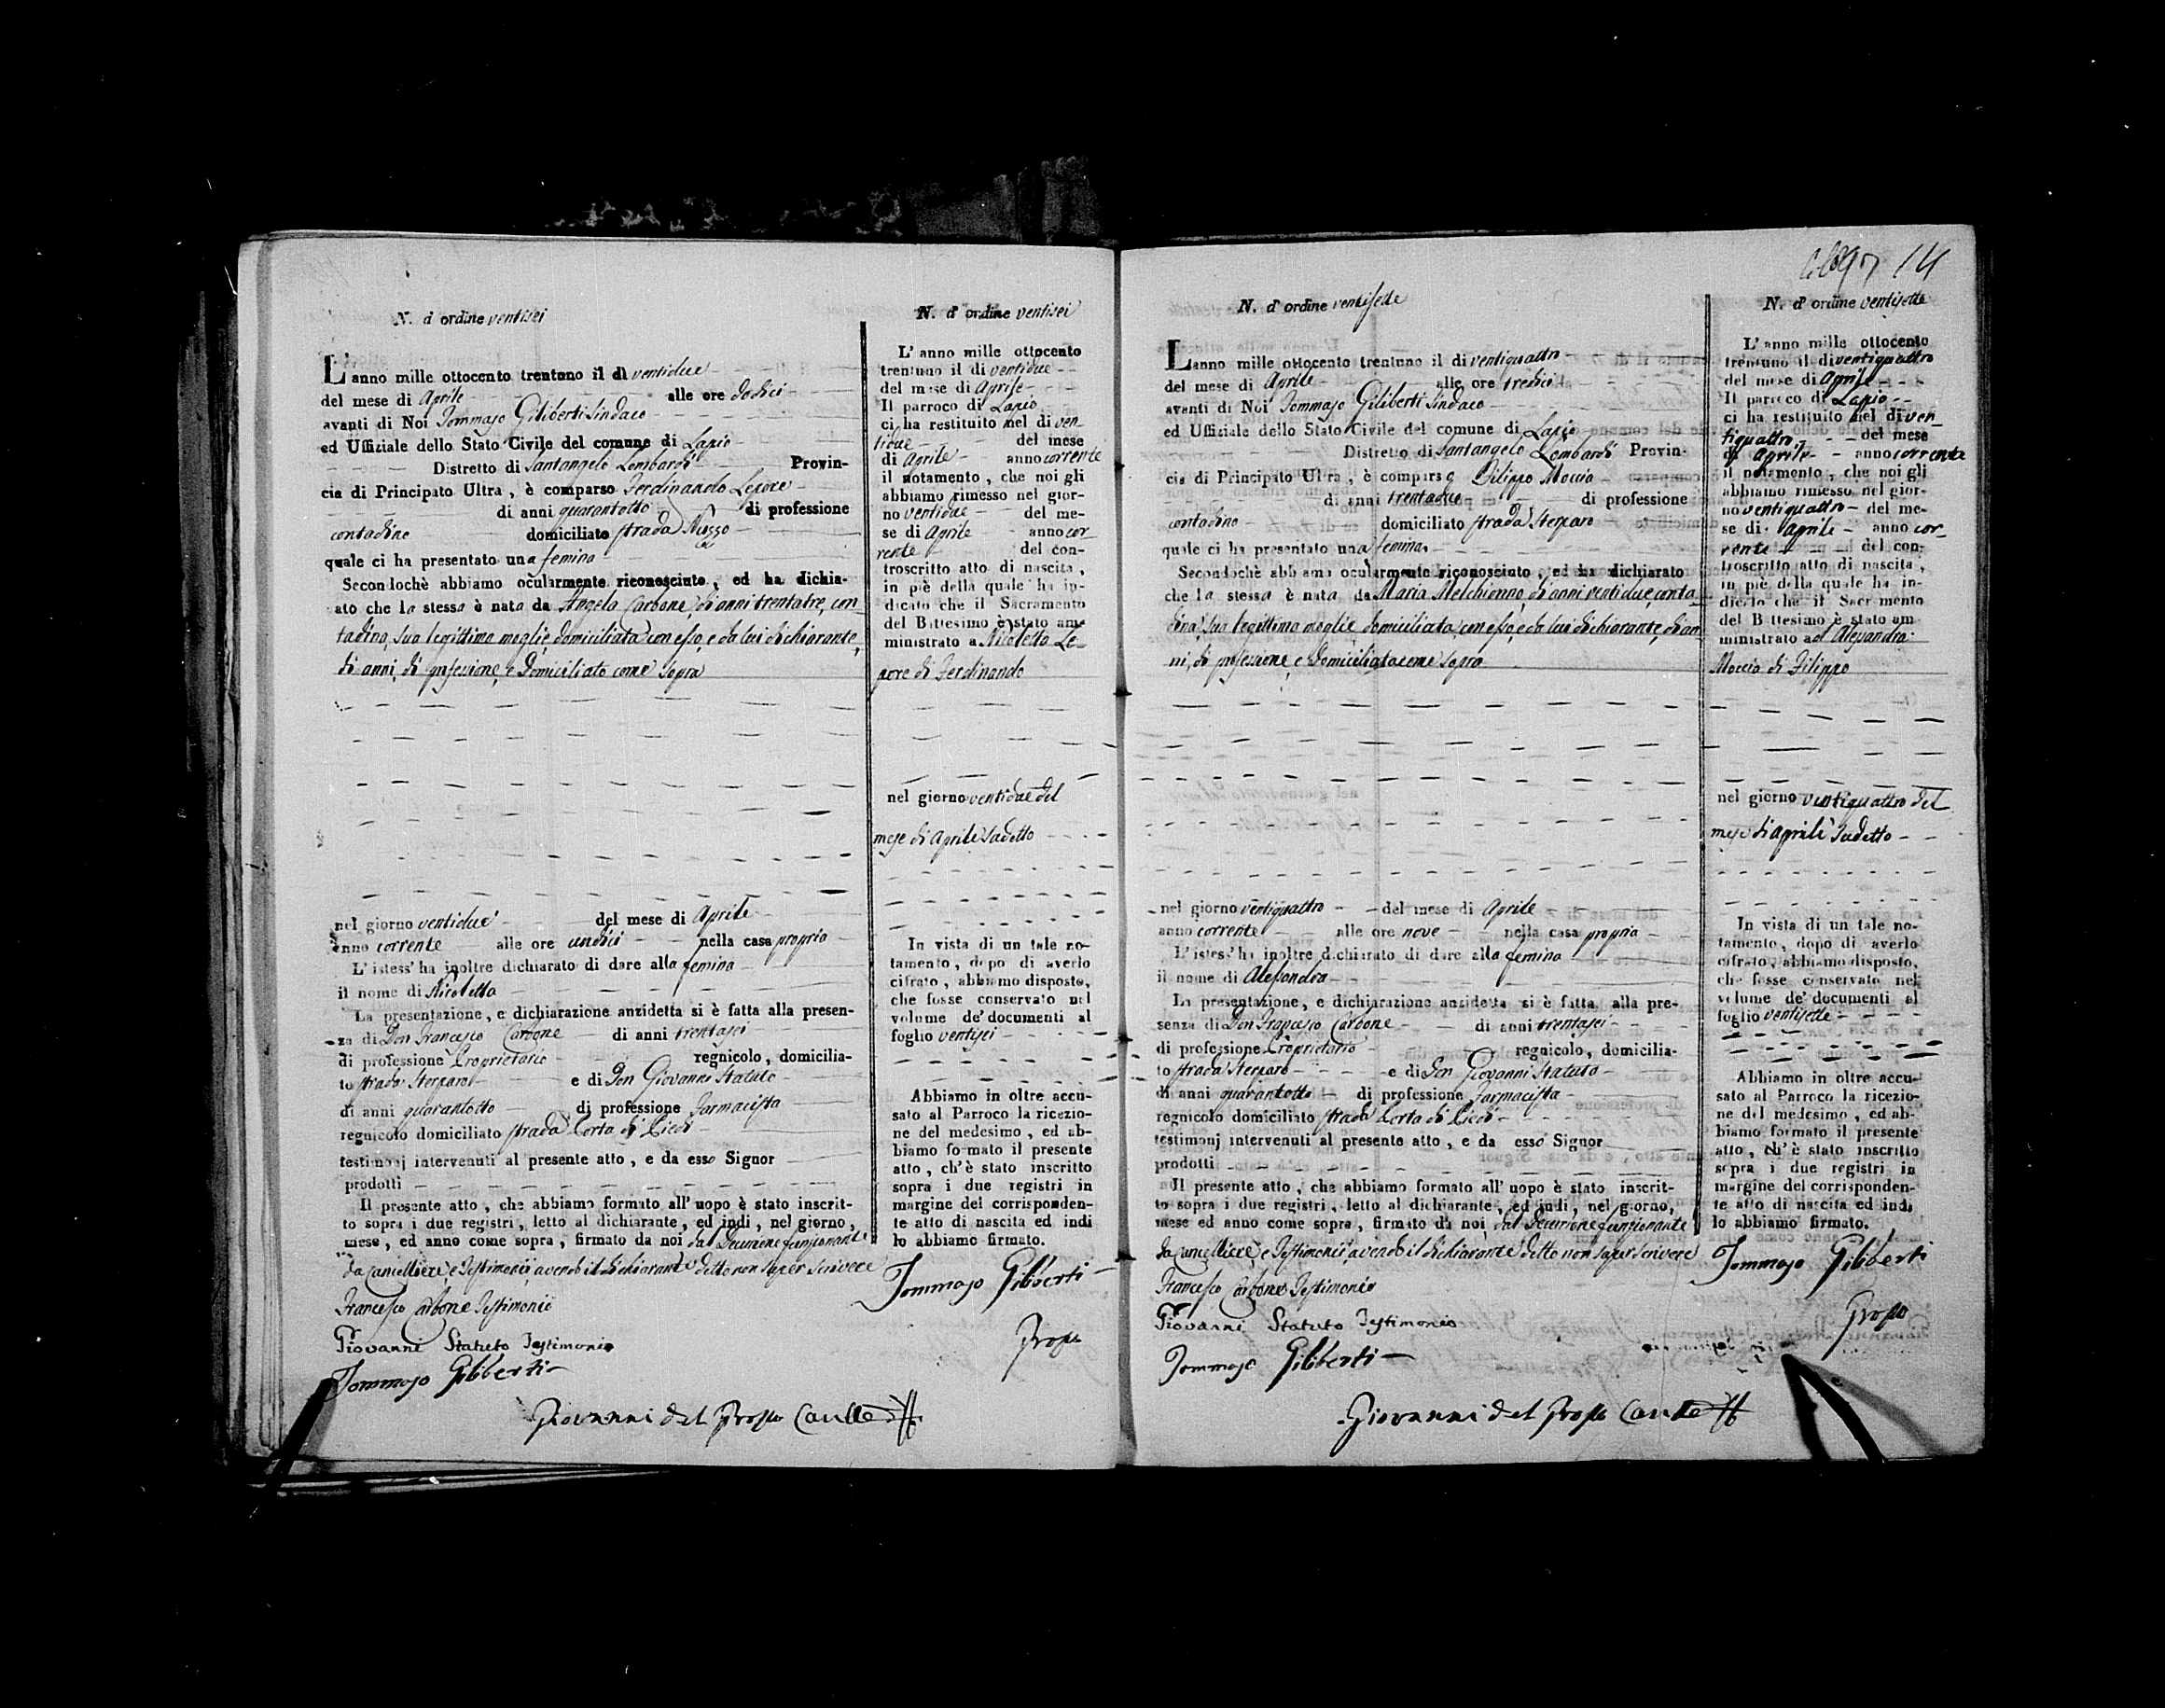 N. d' ordine ventisei
L' anno mille ottocento trentuno il dì ventidue
del mese di Aprile alle ore dodici
avanti di Noi Tommaso Giliberti Sindaco
ed Uffiziale dello Stato Civile del comune di Lapio
Distretto di Santangelo Lombardi Provin-
cia di Principato Ultra, è comparso Ferdinando Lepore
di anni quarantotto di professione
contadino domiciliato strada
quale ci ha presentato una femina
Secondochè abbiamo ocularmente riconosciuto, ed ha dichia-
ato che la stessa è nata da Angela Carbone di anni trentatre, con-
tadina, sua legittima moglie, domiciliata con esso, e da lui dichiarante,
di anni, di professione, e domiciliato come sopra
nel giorno ventidue del mese di Aprile
anno corrente alle ore undici nella casa propria
L' istess' ha inoltre dichiarato di dare alla femina
il nome di Nicoletta
La presentazione, e dichiarazione anzidetta si è fatta alla presen-
za di Don Francesco Carbone di anni trentasei
di professione Proprietario regnicolo, domicilia-
to strada Sterparo e di Don Giovanni Statuto
di anni quarantotto di professione Farmacista
regnicolo domiciliato strada Corta di Piedi
testimonj intervenuti al presente atto, e da esso Signor
prodotti
Il presente atto, che abbiamo formato all' uopo è stato inscrit-
to sopra i due registri, letto al dichiarante, ed indi, nel giorno,
mese, ed anno come sopra, firmato da noi dal Decurione funzionante
da Cancelliere, e Testimonii, avendo il dichiarante detto non saper scrivere
Francesco Carbone Testimonio
Giovanni Statuto Testimonio
Tommaso Giliberti
Giovanni del Grosso
N. d' ordine ventisei
L' anno mille ottocento
trentuno il di ventidue
del mese di Aprile
Il parroco di Lapio
ci ha restituito nel di ven-
tidue del mese
di Aprile anno corrente
il notamento, che noi gli
abbiamo rimesso nel gior-
no ventidue del me-
se di Aprile anno cor-
rente del con-
troscritto atto di nascita,
in piè della quale ha in-
dicato che il Sacramento
del Battesimo è stato am-
ministrato a Nicoletta Le-
pore di Ferdinando
nel giorno ventidue del
mese di Aprile sudetto
In vista di un tale no-
tamento, dopo di averlo
cifrato, abbiamo disposto,
che fosse conservato nel
volume de' documenti al
foglio ventisei
Abbiamo in oltre accu-
sato al Parroco la ricezio-
ne del medesimo, ed ab-
biamo formato il presente
atto, ch'è stato inscritto
sopra i due registri in
margine del corrisponden-
te atto di nascita ed indi
lo abbiamo firmato.
Tommaso Giliberti
Grosso
14
N. d' ordine ventisette
L'anno mille ottocento trentuno il di ventiquattro
del mese di Aprile alle ore tredici
avanti di Noi Tommaso Giliberti Sindaco
ed Uffiziale dello Stato Civile del comune di Lapio
Distretto di Santangelo Lombardi Provin-
cia di Principato Ultra, è comparso Filippo Moccia
di anni trentadue di professione
contadino domiciliato strada Sterparo
quale ci ha presentato una femina
Secondochè abbiamo ocularmente riconosciuto, ed ha dichiarato
che la stessa è nata da Maria Melchionna, di anni ventidue, conta-
dina, sua legittima moglie, domiciliata con esso, e da lui dichiarante, di an-
ni, di professione, e domiciliata come sopra
nel giorno ventiquattro del mese di Aprile
anno corrente alle ore nove nella casa propria
L'istess' ha inoltre dichiarato di dare alla femina
il nome di Alessandra
La presentazione, e dichiarazione anzidetta si è fatta alla pre-
senza di Don Francesco Carbone di anni trentasei
di professione Proprietario regnicolo, domicilia-
to strada Sterparo e di Don Giovanni Statuto
di anni quarantotto di professione Farmacista
regnicolo domiciliato strada Corta di Piedi
testimonj intervenuti al presente atto, e da esso Signor
prodotti
Il presente atto, che abbiamo formato all' uopo è stato inscrit-
to sopra i due registri, letto al dichiarante, ed indi, nel giorno,
mese ed anno come sopra, firmato da noi dal Decurione funzionante
da Cancelliere, e Testimonii, avendo il dichiarante detto non saper scrivere
Francesco Carbone Testimonio
Giovanni Statuto Testimonio
Tommaso Giliberti
Giovanni del Grosso
N. d' ordine ventisette
L' anno mille ottocento
trentuno il di ventiquattro
del mese di Aprile
Il parroco di Lapio
ci ha restituito nel di ven-
tiquattro del mese
di Aprile anno corrente
il notamento, che noi gli
abbiamo rimesso nel gior-
no ventiquattro del me-
se di Aprile anno cor-
rente del con-
troscritto atto di nascita,
in piè della quale ha in-
dicato che il Sacramento
del Battesimo è stato am-
ministrato ad Alessandra
Moccia di Filippo
nel giorno ventiquattro del
mese di Aprile sudetto
In vista di un tale no-
tamento, dopo di averlo
cifrato, abbiamo disposto,
che fosse conservato nel
volume de' documenti al
foglio ventisette
Abbiamo in oltre accu-
sato al Parroco la ricezio-
ne del medesimo, ed ab-
biamo formato il presente
atto, ch'è stato inscritto
sopra i due registri in
margine del corrisponden-
te atto di nascita ed indi
lo abbiamo firmato.
Tommaso Giliberti
Grosso